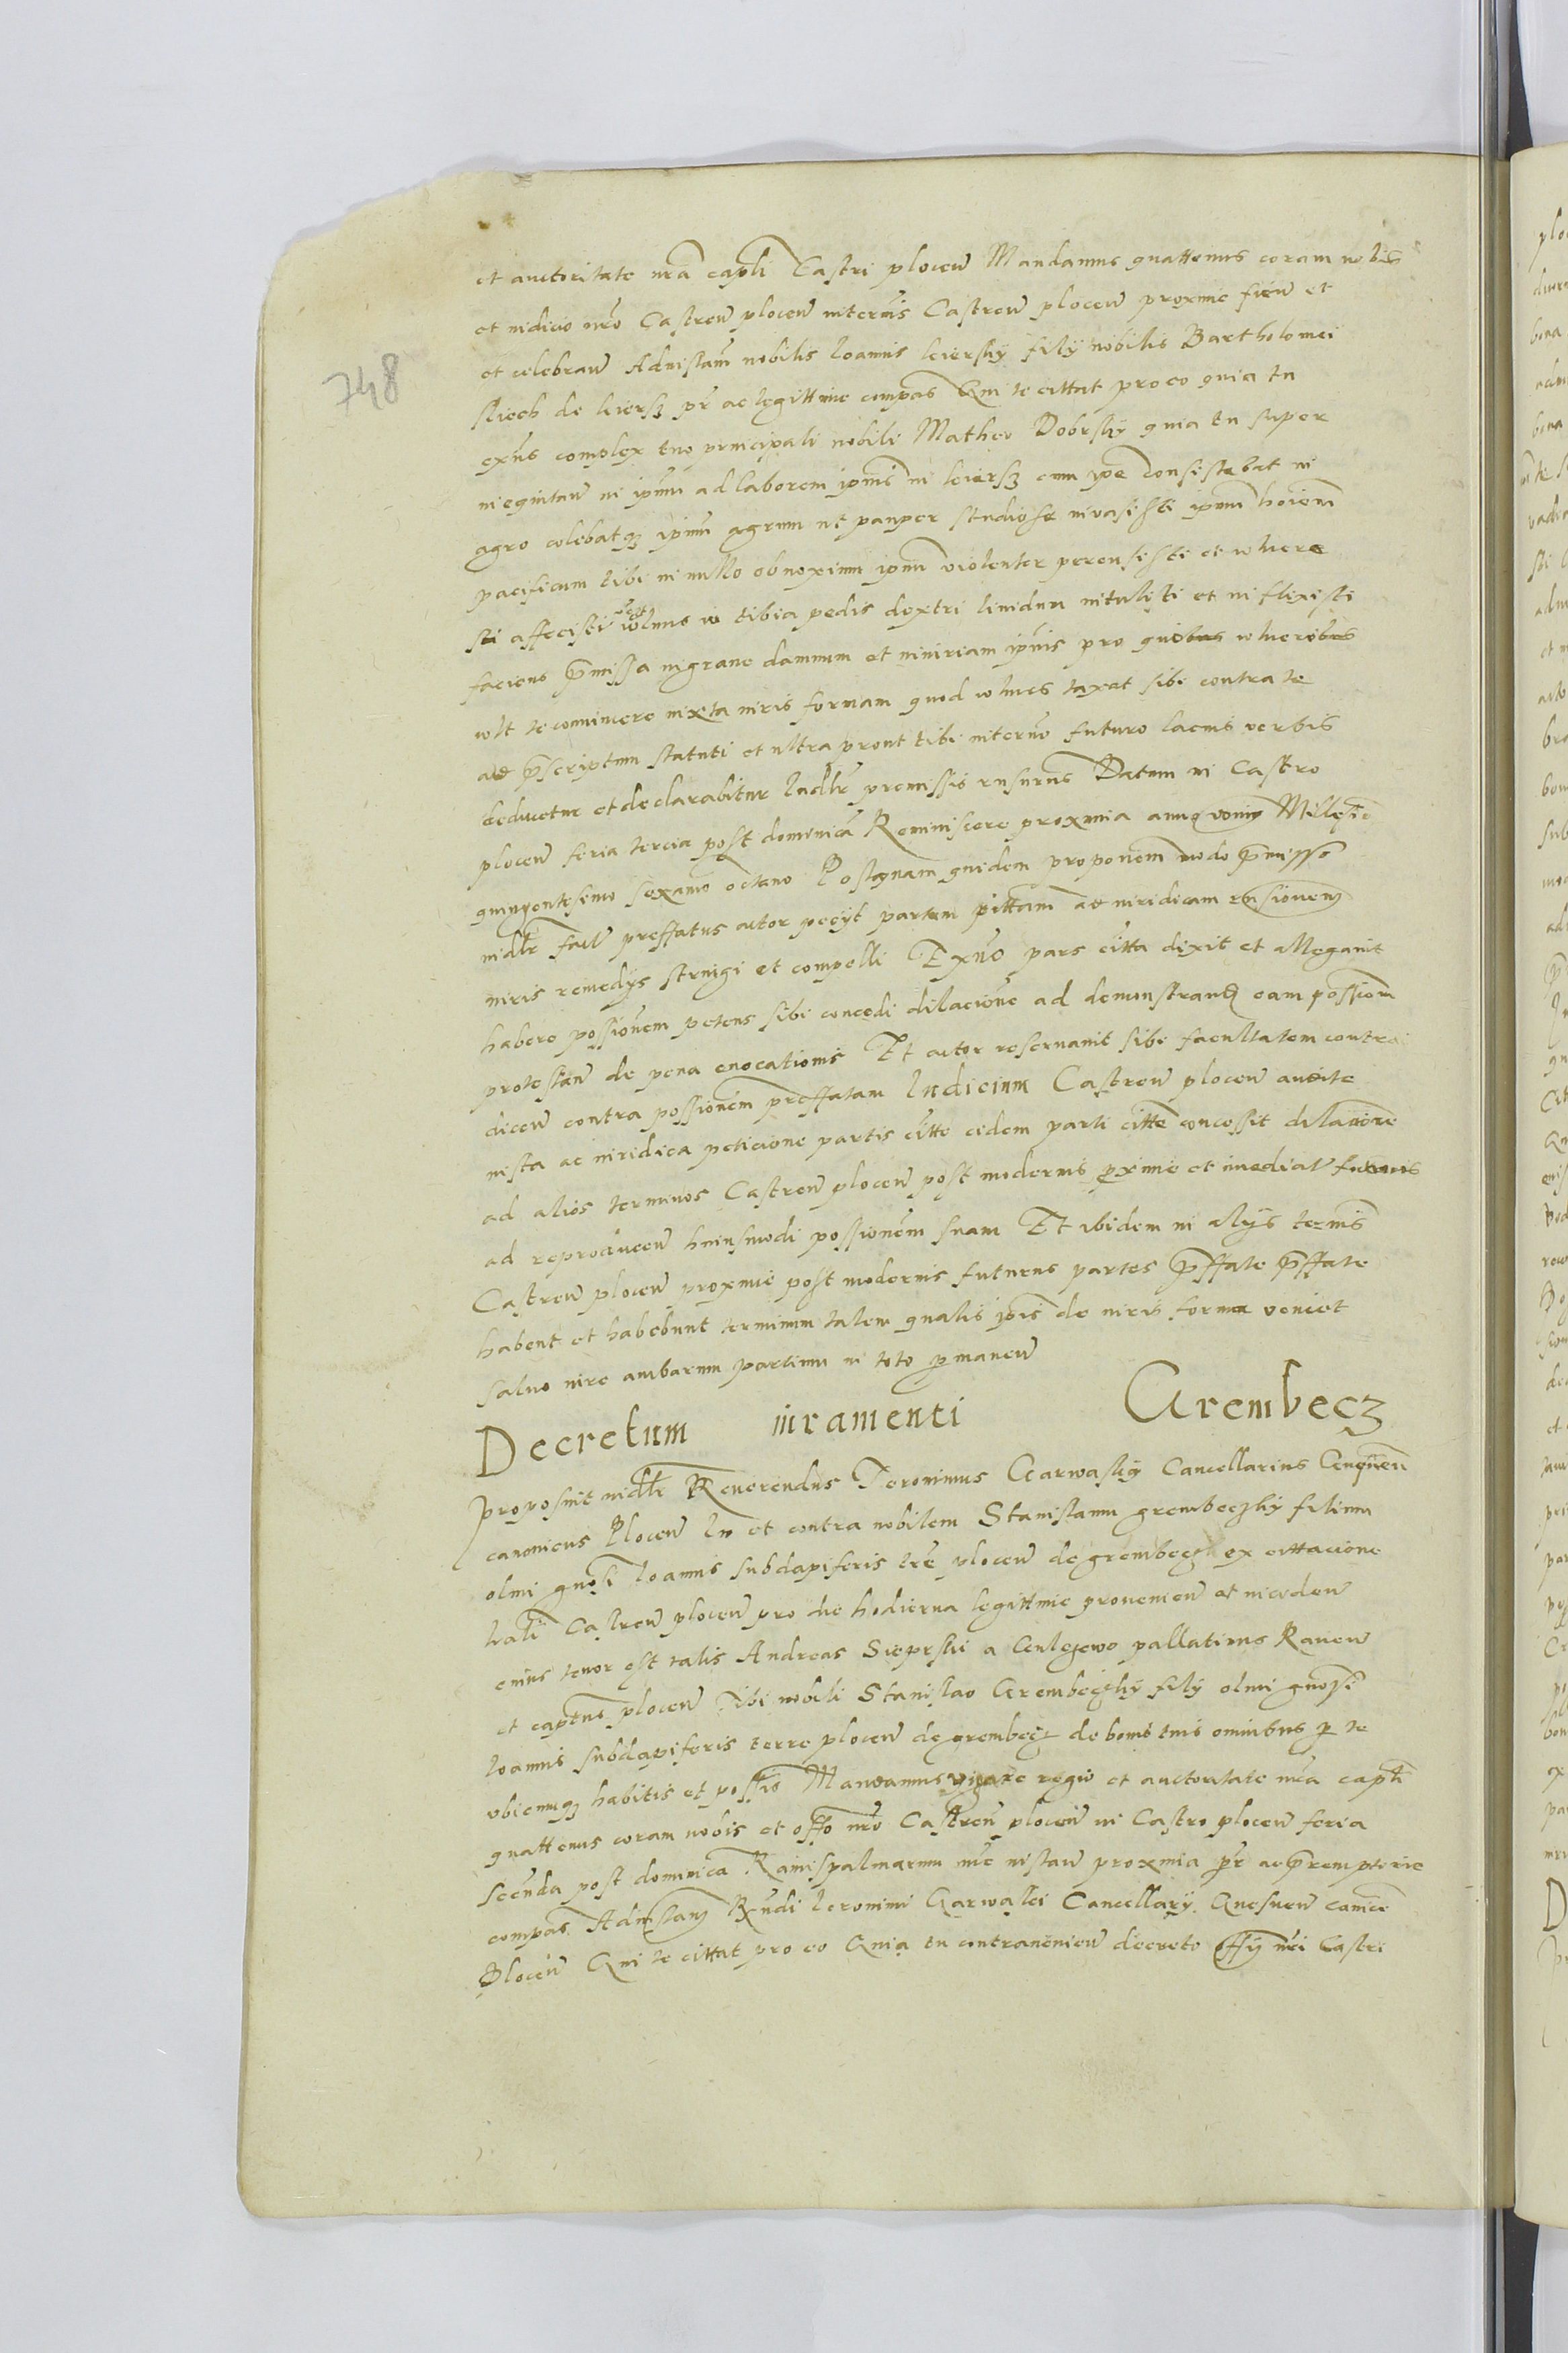 748
et auctoritate nrã capłi Castri plocen̄ Mandamus quattenus coram nobis
et iudicio nrõ Castren̄ plocen̄ in terĩs Castren̄ plocen̄ proxime fien̄ et
et celebran̄ Ad instam̃ nobilis Ioannis leiersky filÿ nobilis Bartholomei
de leiersz pr̃ ac legittime compãs Qui te cittat pro eo quia tu
exñs complex tuo principali nobili Matheo Dobrsky quia tu super
ni ipm̃ ad laborem ipiũs in leiersz cum ipe consistebat in
agro colebatqz ipm̃ agrum ut pauper studiose invasisti ipm̃ hoiem̃
pacificum tibi in nullo obnoxium ipm̃ violenter percussisti et wlnere
sti affecisti wlnus in tibia pedis dextri lividum intulisti et inflixisti
faciens p̃missa in grave damnum et iniuriam ipiũs pro quibus wlneribus
wlt te convincere iuxta iuris formam quod wlnus taxat sibi contra te
ad p̃scriptum statuti et ultra prout tibi in terño futuro lacius verbis
deducetur et declarabitur Iudlr̃ premissis rnsurus Datum in Castro
plocen̄ feria tercia post dominicã Reminiscere proxima anno domini Millesio
quingentesimo sexãmo octavo Postquam quidem proponem̃ modo p̃misso
iudlr̃ factã preffatus actor peÿt partem cittam̃ ad iuridicam rnsionem
iuris remedÿs stringi et compelli Ex̃uo pars citta dixit et allegavit
habere possionem̃ petens sibi concedi dilacione ad demonstrand̃ eam possiom̃
protestan̄ de pena evocationis Et actor reservavit sibi facultatem contra
dicen̄ contra possionem̃ preffatam Iudicium Castren̄ plocen̄ audite
iusta ac iuridica peticione partis citte eidem parti citte concessit dilacionẽ
ad alios terminos Castren̄ plocen̄ post modernis p̃xime et imediat̃ futuris
ad reproducen̄ huiusmodi possionem̃ suam Et ibidem in alÿs termis
Castren̄ plocen̄ proxime post modernis futurus partes p̃ffate p̃ffate
habent et habebunt terminum talem qualis ip̃is de iuris forma veniet
salvo iure ambarum partium in toto p̃manen̄
Decretum iuramenti Grembecz
Proposuit iudlr̃ Reverendus Ieronimus Garwasky Cancellarius
canonicus Plocen̄ In et contra nobilem Stanislaum grembeczky filium
olmi gnosi Ioannis subdapiferis trẽ plocen̄ de grembecz ex cittacione
Castren̄ plocen̄ pro die hodierna legittime provenien̄ et inciden̄
cuius tenor est talis Andreas Sieprski a Gulczewo pallatinus Raven̄
et capĩtus plocen̄ Tibi nobili Stanislao Grembeczky filÿ olmi gnosi
Ioannis subdapiferis terre plocen̄ de grembecz de bonis tuis omnibus p̃ te
ubicumqz habitis et possis Mandamus regio et auctoritate nrã capłi
quattenus coram nobis et offo nrõ Castren̄ plocen̄ in Castro plocen̄ feria
secunda post dominicã Ramispalmarum nunc instan̄ proxima pr̃ ac p̃remptorie
compãs Ad instam̃ Rñdi Ieronimi Garwaski Cancellarÿ Gnesnen̄ canici
Plocen̄ Qui te cittat pro eo Quia tu contravenien̄ decreto offÿ nri Castri